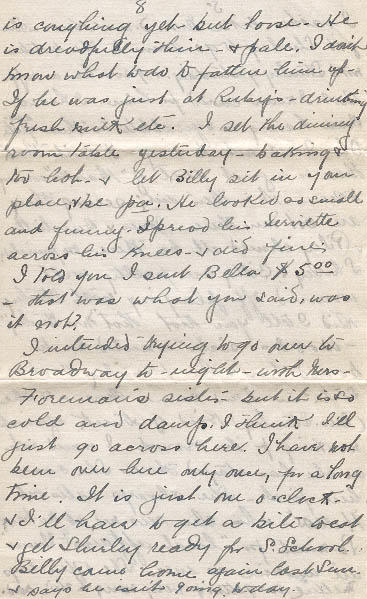 8
is coughing yet but loose. He
is dreadfully thin - & pale. I don't
know what to do to fatten him up.
If he was just at Ruby's - drinking
fresh milk etc. I set the dining
room table yesterday - baking &
too hot - & let Billy sit in your
place, like pa. He looked so small
and funny. Spread his serviette
across his knees - & did fine.
I told you I sent Bella $5.00
- that was what you said, was
it not?
I intended trying to go over to
Broadway to-night - with Mrs.
Foreman's sister - but it is so
cold and damp. I think I'll
just go across here. I have not
been over here only once, for a long
time. It is just one o'clock -
& I'll have to get a bite to eat
& get Shirley ready for S. School.
Billy came home again last Sun.
& says he isn't going to-day.